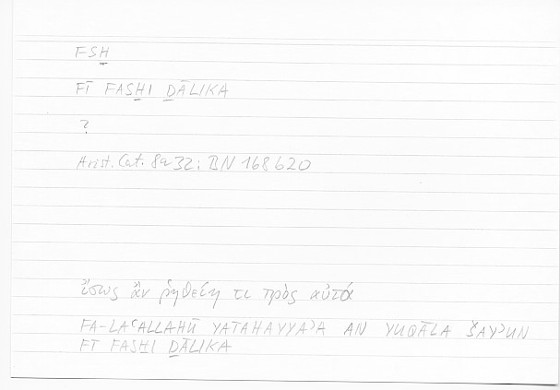 FSH̱
FĪ FASH̱I ḎĀLIKA
?
Arist. Cat. 8a32; BN 168b20
ἴσως ἂν ῥηθείη τι πρὸς αὐτά
FA-LAʿALLAHŪ YATAHAYYAʾA AN YUQĀLA ŠAYʾUN
FĪ FASH̱I ḎĀLIKA